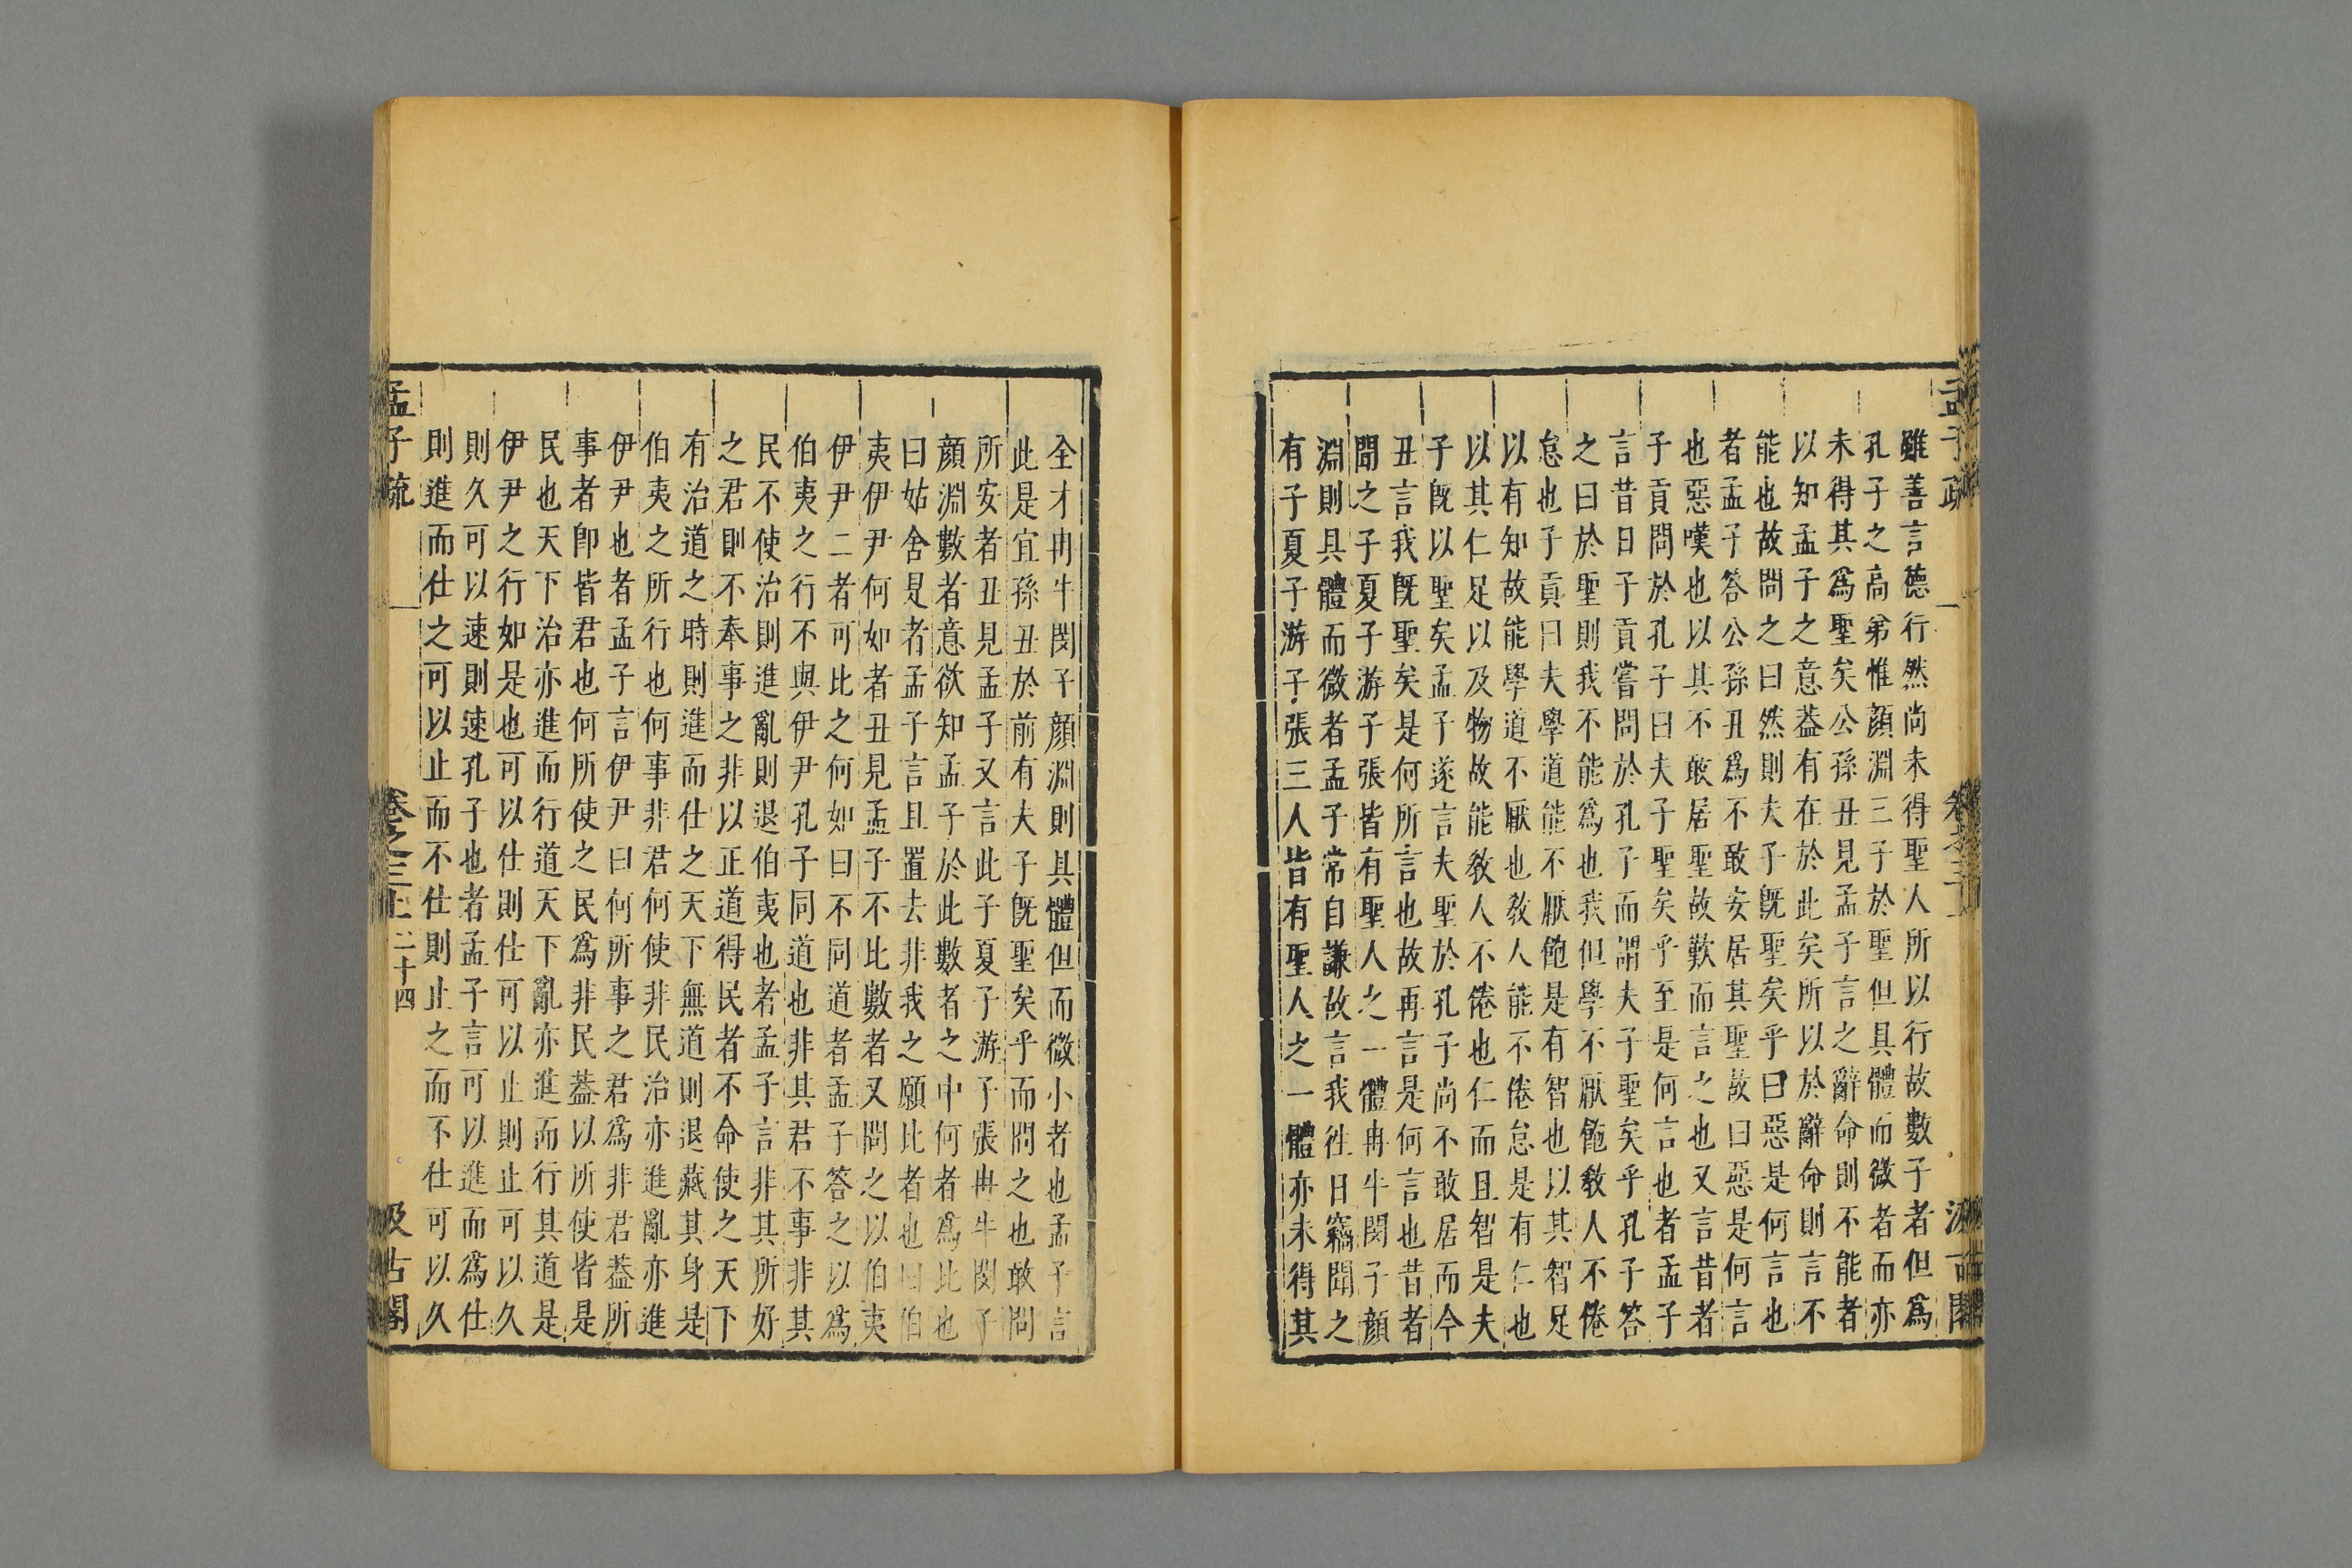 雖善言德行然尚未得聖人所以行故數子者但爲
孔子之高弟惟顏淵三子於聖但具體而微者而亦
未得其爲聖矣公孫丑見孟子言之辭命則不能者
以知孟子之意葢有在於此矣所以於辭命則言不
能也故問之曰然則夫子旣聖矣乎曰惡是何言也
者孟子答公孫丑爲不敢安居其聖故曰惡是何言
也惡嘆也以其不敢居聖故歎而言之也又言昔者
子貢問於孔子曰夫子聖矣乎至是何言也者孟子
言昔日子貢嘗問於孔子而謂夫子聖矣乎孔子答
之曰於聖則我不能爲也我但學不厭飽敎人不倦
怠也子貢曰夫學道能不厭飽是有智也以其智足
以有知故能學道不厭也敎人能不倦怠是有仁也
以其仁足以及物故能敎人不倦也仁而且智是夫
子旣以聖矣孟子遂言夫聖於孔子尚不敢居而今
丑言我旣聖矣是何所言也故再言是何言也昔者
聞之子夏子游子張皆有聖人之一體冉牛閔子顏
淵則具體而微者孟子常自謙故言我往日竊聞之
有子夏子游子張三人皆有聖人之一體亦未得其
全才冉牛閔子顏淵則具體但而微小者也孟子言
此是宜孫丑於前有夫子旣聖矣乎而問之也敢問
所安者丑見孟子又言此子夏子游子張冉牛閔子
顏淵數者意欲知孟子於此數者之中何者爲比也
曰姑舍是者孟子言且置去非我之願比者也曰伯
夷伊尹何如者丑見孟子不比數者又問之以伯夷
伊尹二者可比之何如曰不同道者孟子答之以爲
伯夷之行不與伊尹孔子同道也非其君不事非其
民不使治則進亂則退伯夷也者孟子言非其所好
之君則不奉事之非以正道得民者不命使之天下
有治道之時則進而仕之天下無道則退藏其身是
伯夷之所行也何事非君何使非民治亦進亂亦進
伊尹也者孟子言伊尹曰何所事之君爲非君葢所
事者卽皆君也何所使之民爲非民葢以所使皆是
民也天下治亦進而行道天下亂亦進而行其道是
伊尹之行如是也可以仕則仕可以止則止可以久
則久可以速則速孔子也者孟子言可以進而爲仕
則進而仕之可以止而不仕則止之而不仕可以久
孟子疏
卷之三上
二十四
汲古閣